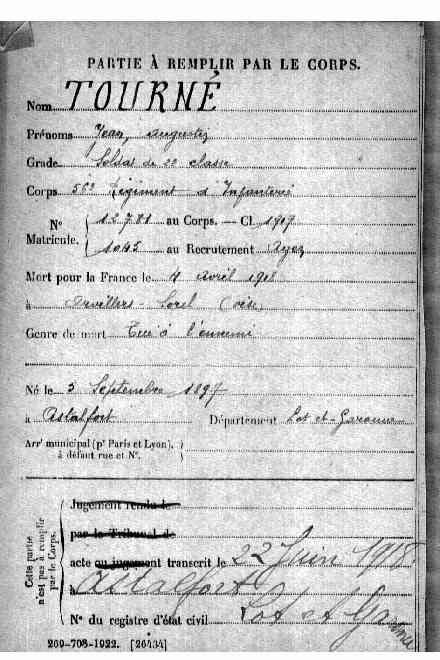 PARTIE À REMPLIR PAR LE CORPS.
Nom TOURNÉ
Prénoms Jean, Augustin
Grade Soldat de 2e classe
Corps 56e Régiment d'Infanterie
N° Matricule. 12781 au Corps. — Cl 1917
1042 au Recrutement Agen
Mort pour la France le 4 Avril 1918
à Orvillers-Sorel (Oise)
Genre de mort Tué à l'ennemi
Né le 3 Septembre 1897
à Astaffort Département Lot et-Garonne
Arrt municipal (pr Paris et Lyon),
à défaut rue et N°.
Cette partie
n'est pas à remplir
par le Corps.
Jugement rendu le
par le Tribunal de
acte ou jugement transcrit le 22 Juin 1918
à Astaffort
N° du registre d'état civil Lot et Garonne
269-708-1922. [26434]